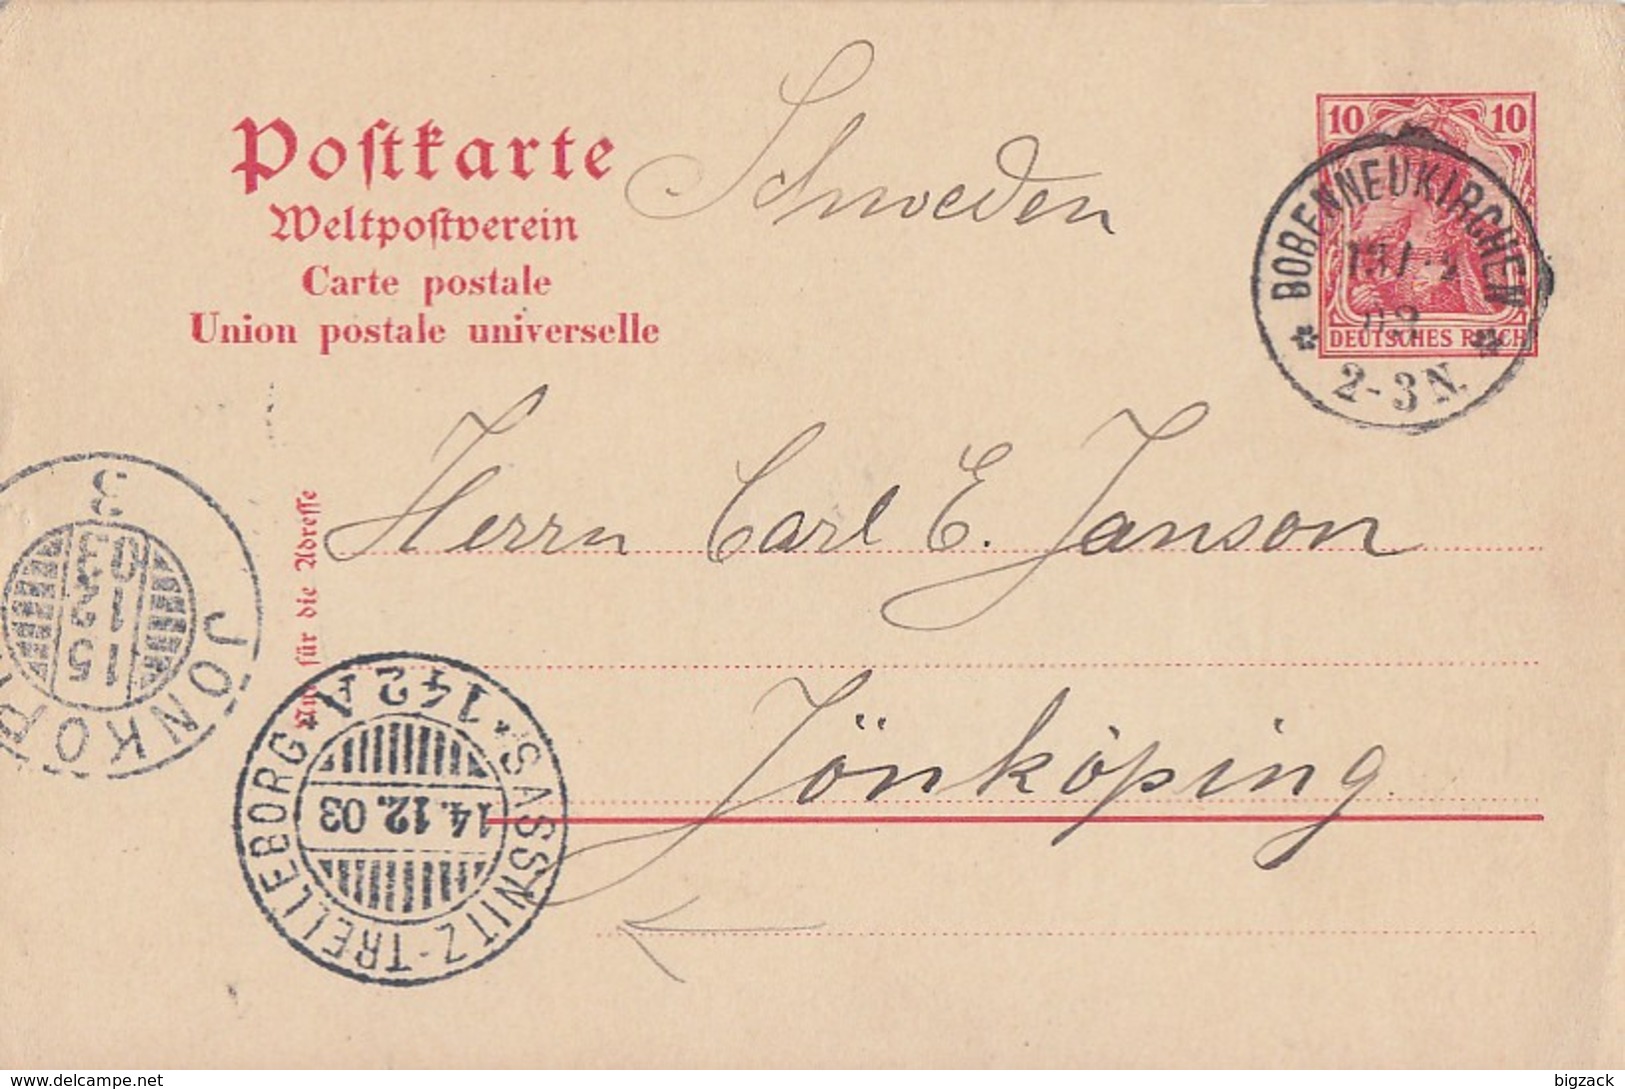 Postkarte
Weltpostverein
Carte postale
Union postale universelle
Schweden
10 10
DEUTSCHES REICH
BOBENNEUKIRCHEN
2-3N.
Herrn Carl E. Janson
Jönköping.
für die Adresse
JÖNKÖP
15
12
03
3
SASSNITZ-TRELLEBORG
142A
14.12.03
delcampe.net
bigzack